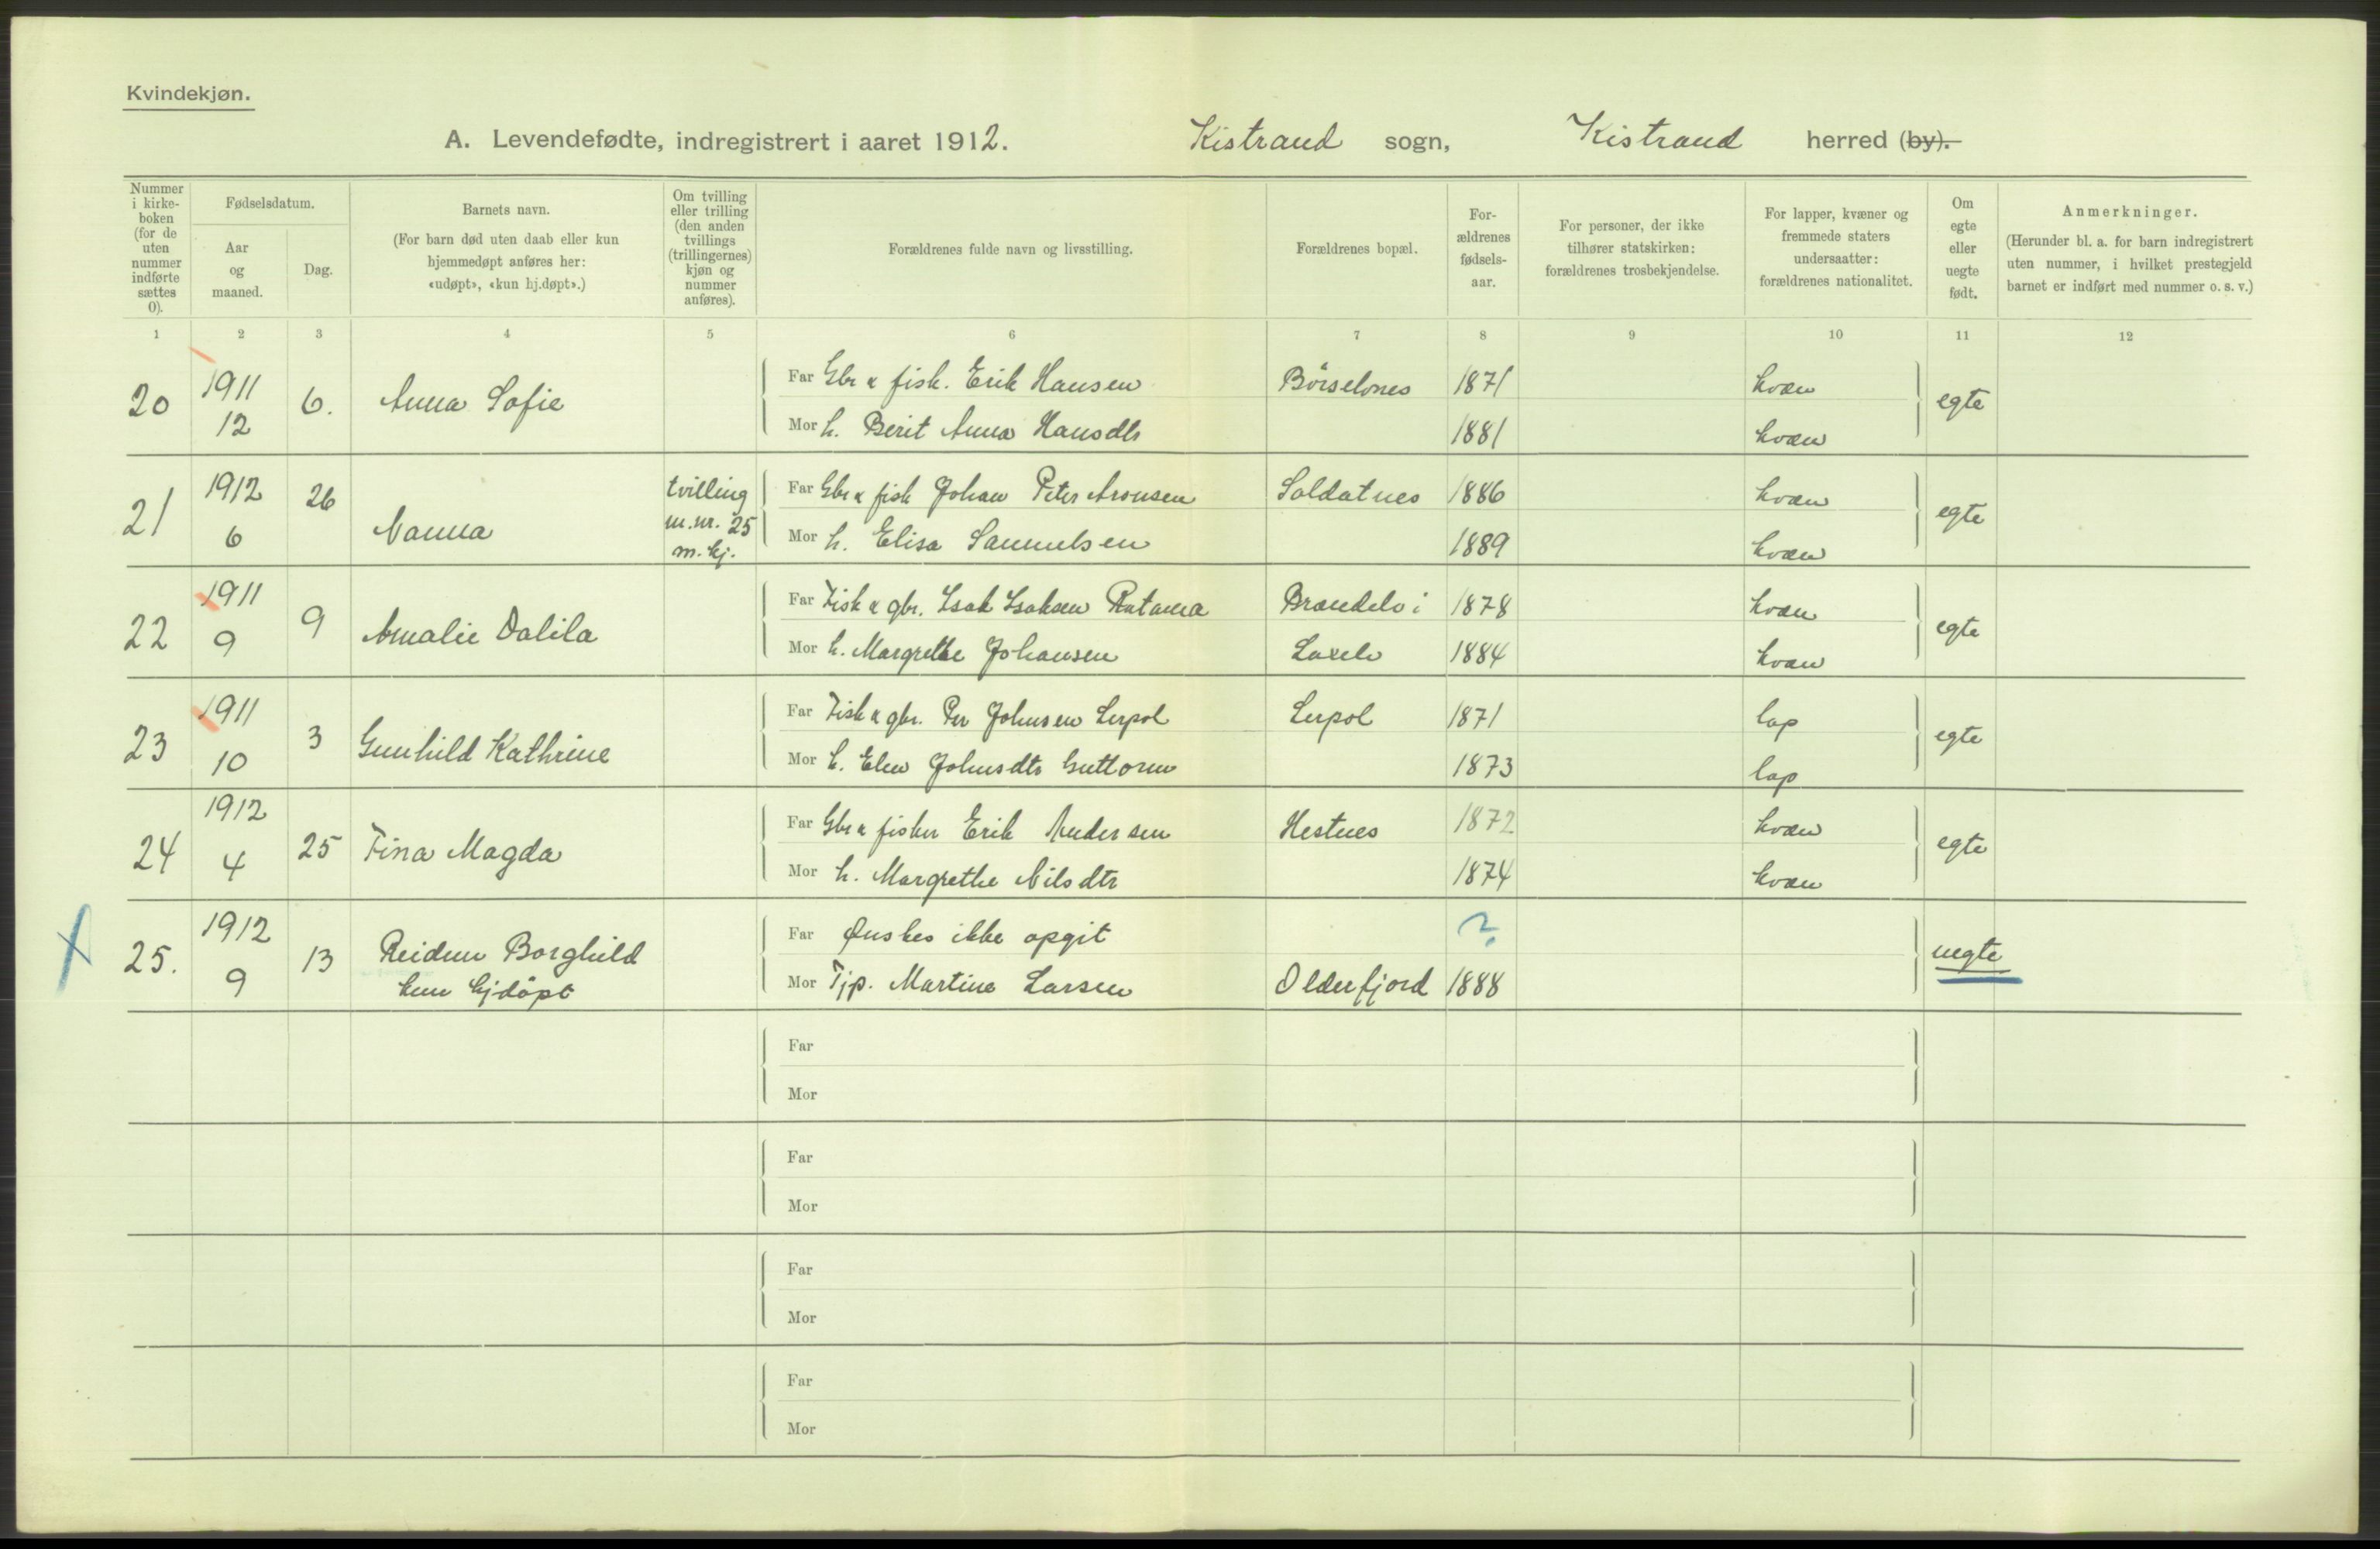 Kvindekjøn.
A. Levendefødte, indregistrert i aaret 1912. Kistrand sogn, Kistrand herred (by).
Nummer i kirke-boken (for de uten nummer indførte sættes 0).
Fødselsdatum.
Aar og maaned.
Dag.
Barnets navn.
(For barn død uten daab eller kun hjemmedøpt anføres her: «udøpt», «kun hj.døpt».)
Om tvilling eller trilling (den anden tvillings (trillingernes) kjøn og nummer anføres).
Forældrenes fulde navn og livsstilling.
Forældrenes bopæl.
For-ældrenes fødsels-aar.
For personer, der ikke tilhører statskirken: forældrenes trosbekjendelse.
For lapper, kvæner og fremmede staters undersaatter: forældrenes nationalitet.
Om egte eller uegte født.
Anmerkninger.
(Herunder bl. a. for barn indregistrert uten nummer, i hvilket prestegjeld barnet er indført med nummer o. s. v.)
1 2 3 4 5 6 7 8 9 10 11 12
20 1911 12 6. Anna Sofie
Far Gbr & fisk. Erik Hansen Börselvnes 1871 kvæn egte
Mor h. Berit Anna Hansdtr 1881 kvæn
21 1912 6 26 Nanna tvilling m. nr. 25 m. kj.
Far Gbr & fisk Johan Peter Aronsen Soldatnes 1886 kvæn egte
Mor h. Elisa Samuelsen 1889 kvæn
22 1911 9 9 Amalie Dalila
Far Fisk & gbr. Isak Isaksen Rutama Brændelv i 1878 kvæn egte
Mor h. Margrethe Johansen Laxelv 1884 kvæn
23 1911 10 3 Gunhild Kathrine
Far Fisk & gbr. Per Johnsen Lerpol Lerpol 1871 lap egte
Mor h. Elen Johnsdtr Guttorm 1873 lap
24 1912 4 25 Fina Magda
Far Gbr & fisker Erik Andersen Hestnes 1872 kvæn egte
Mor h. Margrethe Nilsdtr 1874 kvæn
25. 1912 9 13 Reidun Borghild kun hjdöpt
Far Ønskes ikke opgit ? uegte
Mor Tjp. Martine Larsen Olderfjord 1888
Far
Mor
Far
Mor
Far
Mor
Far
Mor